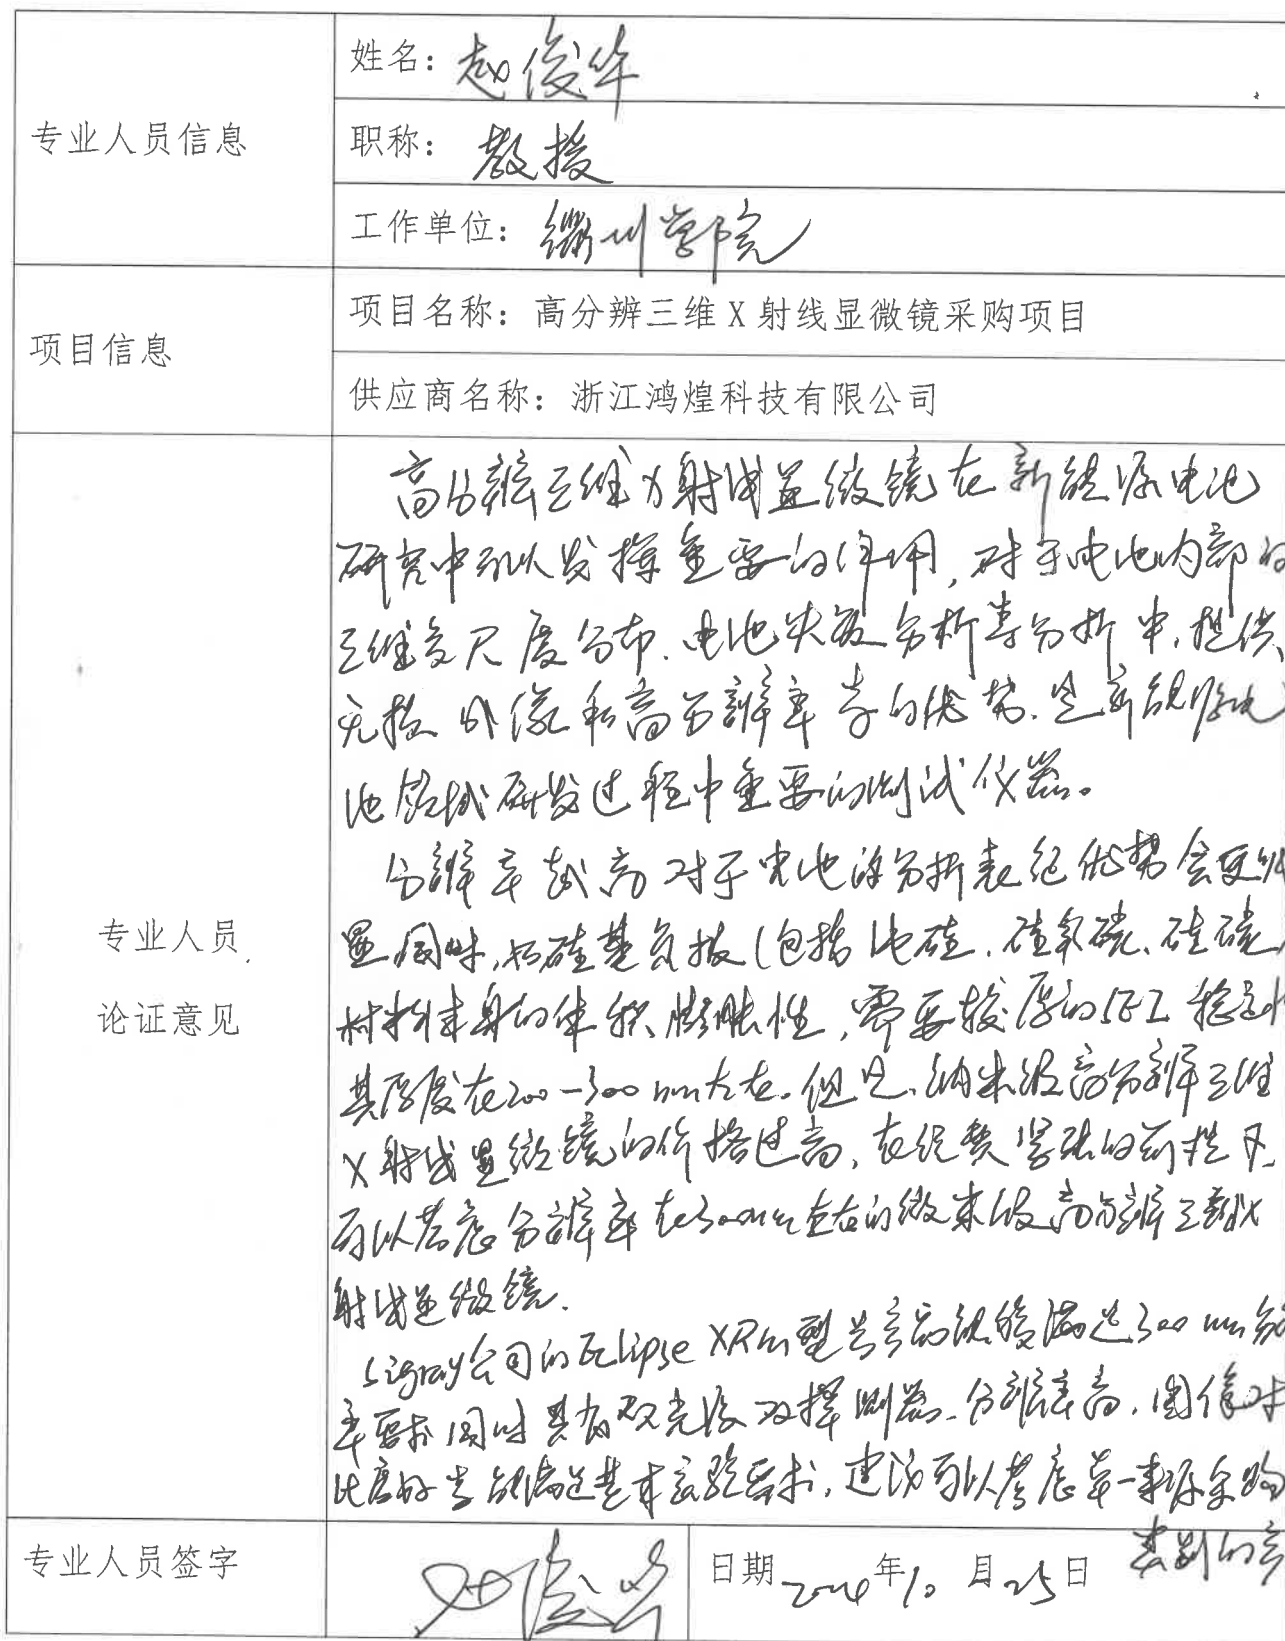 专业人员信息
姓名：赵俊华
职称：教授
工作单位：衢州学院
项目信息
项目名称：高分辨三维X射线显微镜采购项目
供应商名称：浙江鸿煌科技有限公司
专业人员
论证意见
高分辨三维X射线显微镜在新能源电池
研究中可以发挥重要的作用，对于电池内部的
三维多尺度分布、电池失效分析等分析中，提供
无损成像和高分辨率等的优势，是新能源电
池领域研发过程中重要的测试仪器。
分辨率越高对于电池的分析表征优势会更明
显同时，如硅基负极（包括纯硅、硅氧碳、硅碳
材料本身的体积膨胀性，需要较厚的SEI稳定
其厚度在200-300nm左右。但是，纳米级高分辨三维
X射线显微镜的价格过高，在经费紧张的前提下，
可以考虑分辨率在300nm左右的微米级高分辨三维X
射线显微镜。
Sigray公司的Eclipse XRM型号产品能够满足300nm分
率要求同时具有双光源双探测器、分辨率高，图像对
比度好等能满足基本实验要求，建议可以考虑单一来源采购
类别的
专业人员签字
赵俊华
日期2024年10月25日